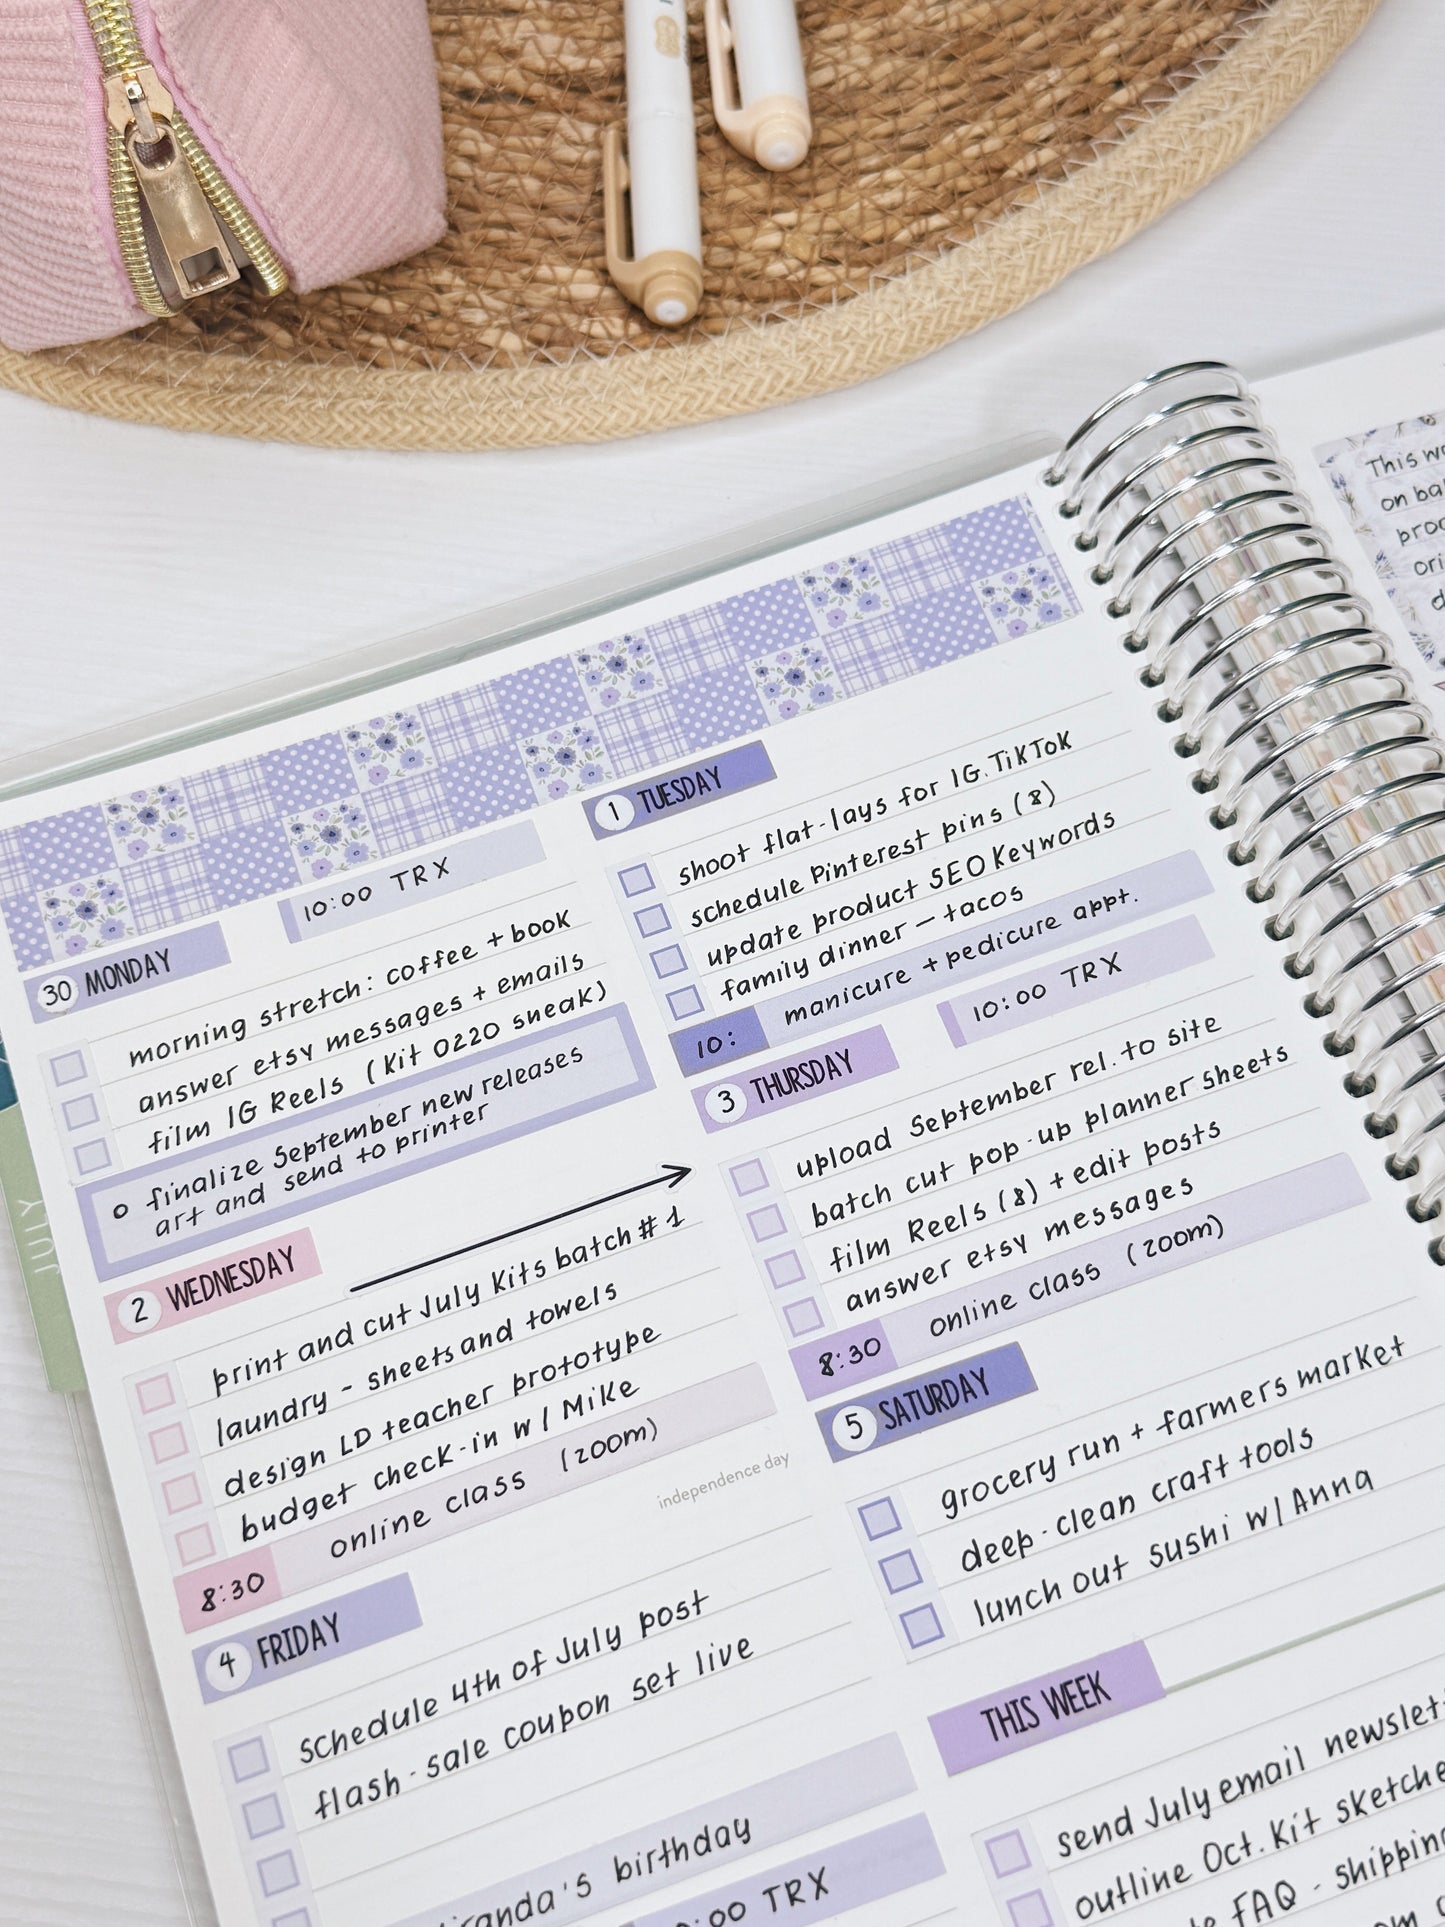 10:00 TRX
30 MONDAY
morning stretch: coffee + book
answer etsy messages + emails
film IG Reels (Kit 0220 sneak)
finalize September new releases
art and send to printer
1 TUESDAY
shoot flat-lays for IG. TikTok
schedule Pinterest pins (8)
update product SEO Keywords
family dinner — tacos
10: manicure + pedicure appt.
2 WEDNESDAY
print and cut July Kits batch #1
laundry - sheets and towels
design LD teacher prototype
budget check-in w/ Mike
8:30 online class (zoom)
10:00 TRX
3 THURSDAY
upload September rel. to site
batch cut pop-up planner sheets
film Reels (8) + edit posts
answer etsy messages
8:30 online class (zoom)
independence day
4 FRIDAY
schedule 4th of July post
flash-sale coupon set live
birthday
TRX
5 SATURDAY
grocery run + farmers market
deep-clean craft tools
lunch out sushi w/ Anna
THIS WEEK
send July email
outline Oct. Kit
FAQ -
JULY
This
on